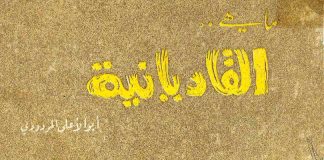 ما هي ..
القاديانية
أبو الأعلى المودودي